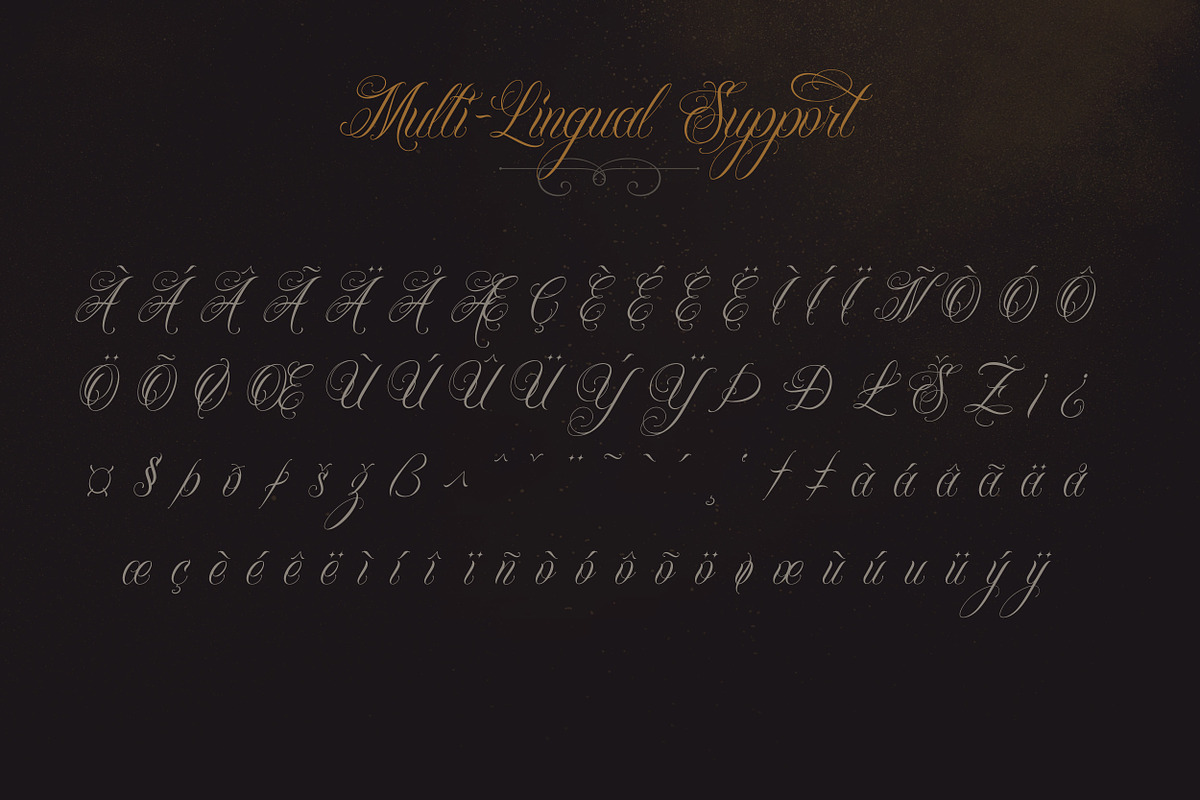 Multi-Lingual Support
À Á Â Ã Ä Å Æ Ç È É Ê Ë Ì Í Ï Ñ Ò Ó Ô
Ö Õ Ø Œ Ù Ú Û Ü Ý Ÿ Þ Ð Ł Š Ž ¡ ¿
¤ § þ ð ł š ž ß ^ ˆ ˇ ¨ ˜ ` ´ ¸ ' † ‡ à á â ã ä å
æ ç è é ê ë ì í î ï ñ ò ó ô õ ö ø œ ù ú u ü ý ÿ